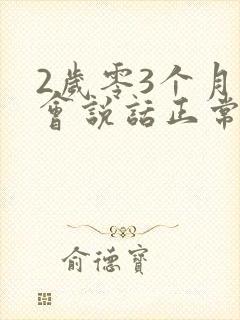 2歲零3个月
會說話正常
俞德寶